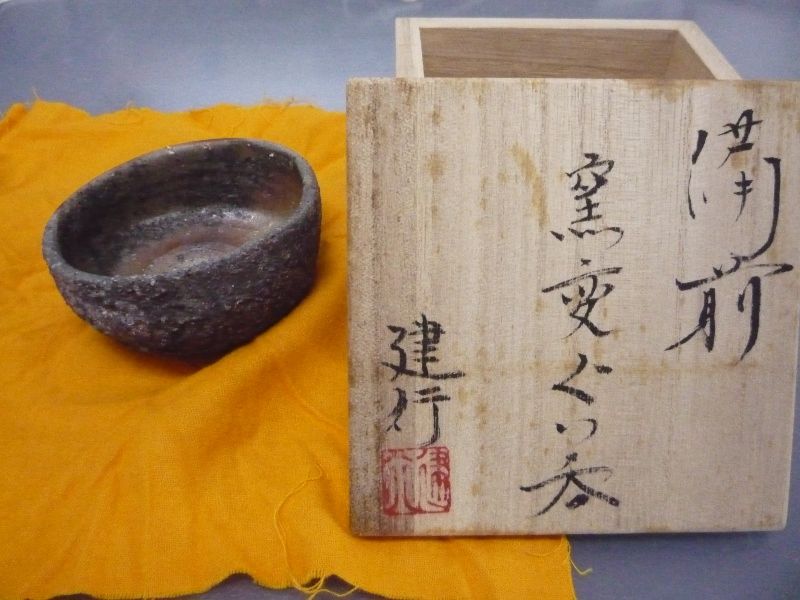 備前
窯変ぐい呑
建行
建行